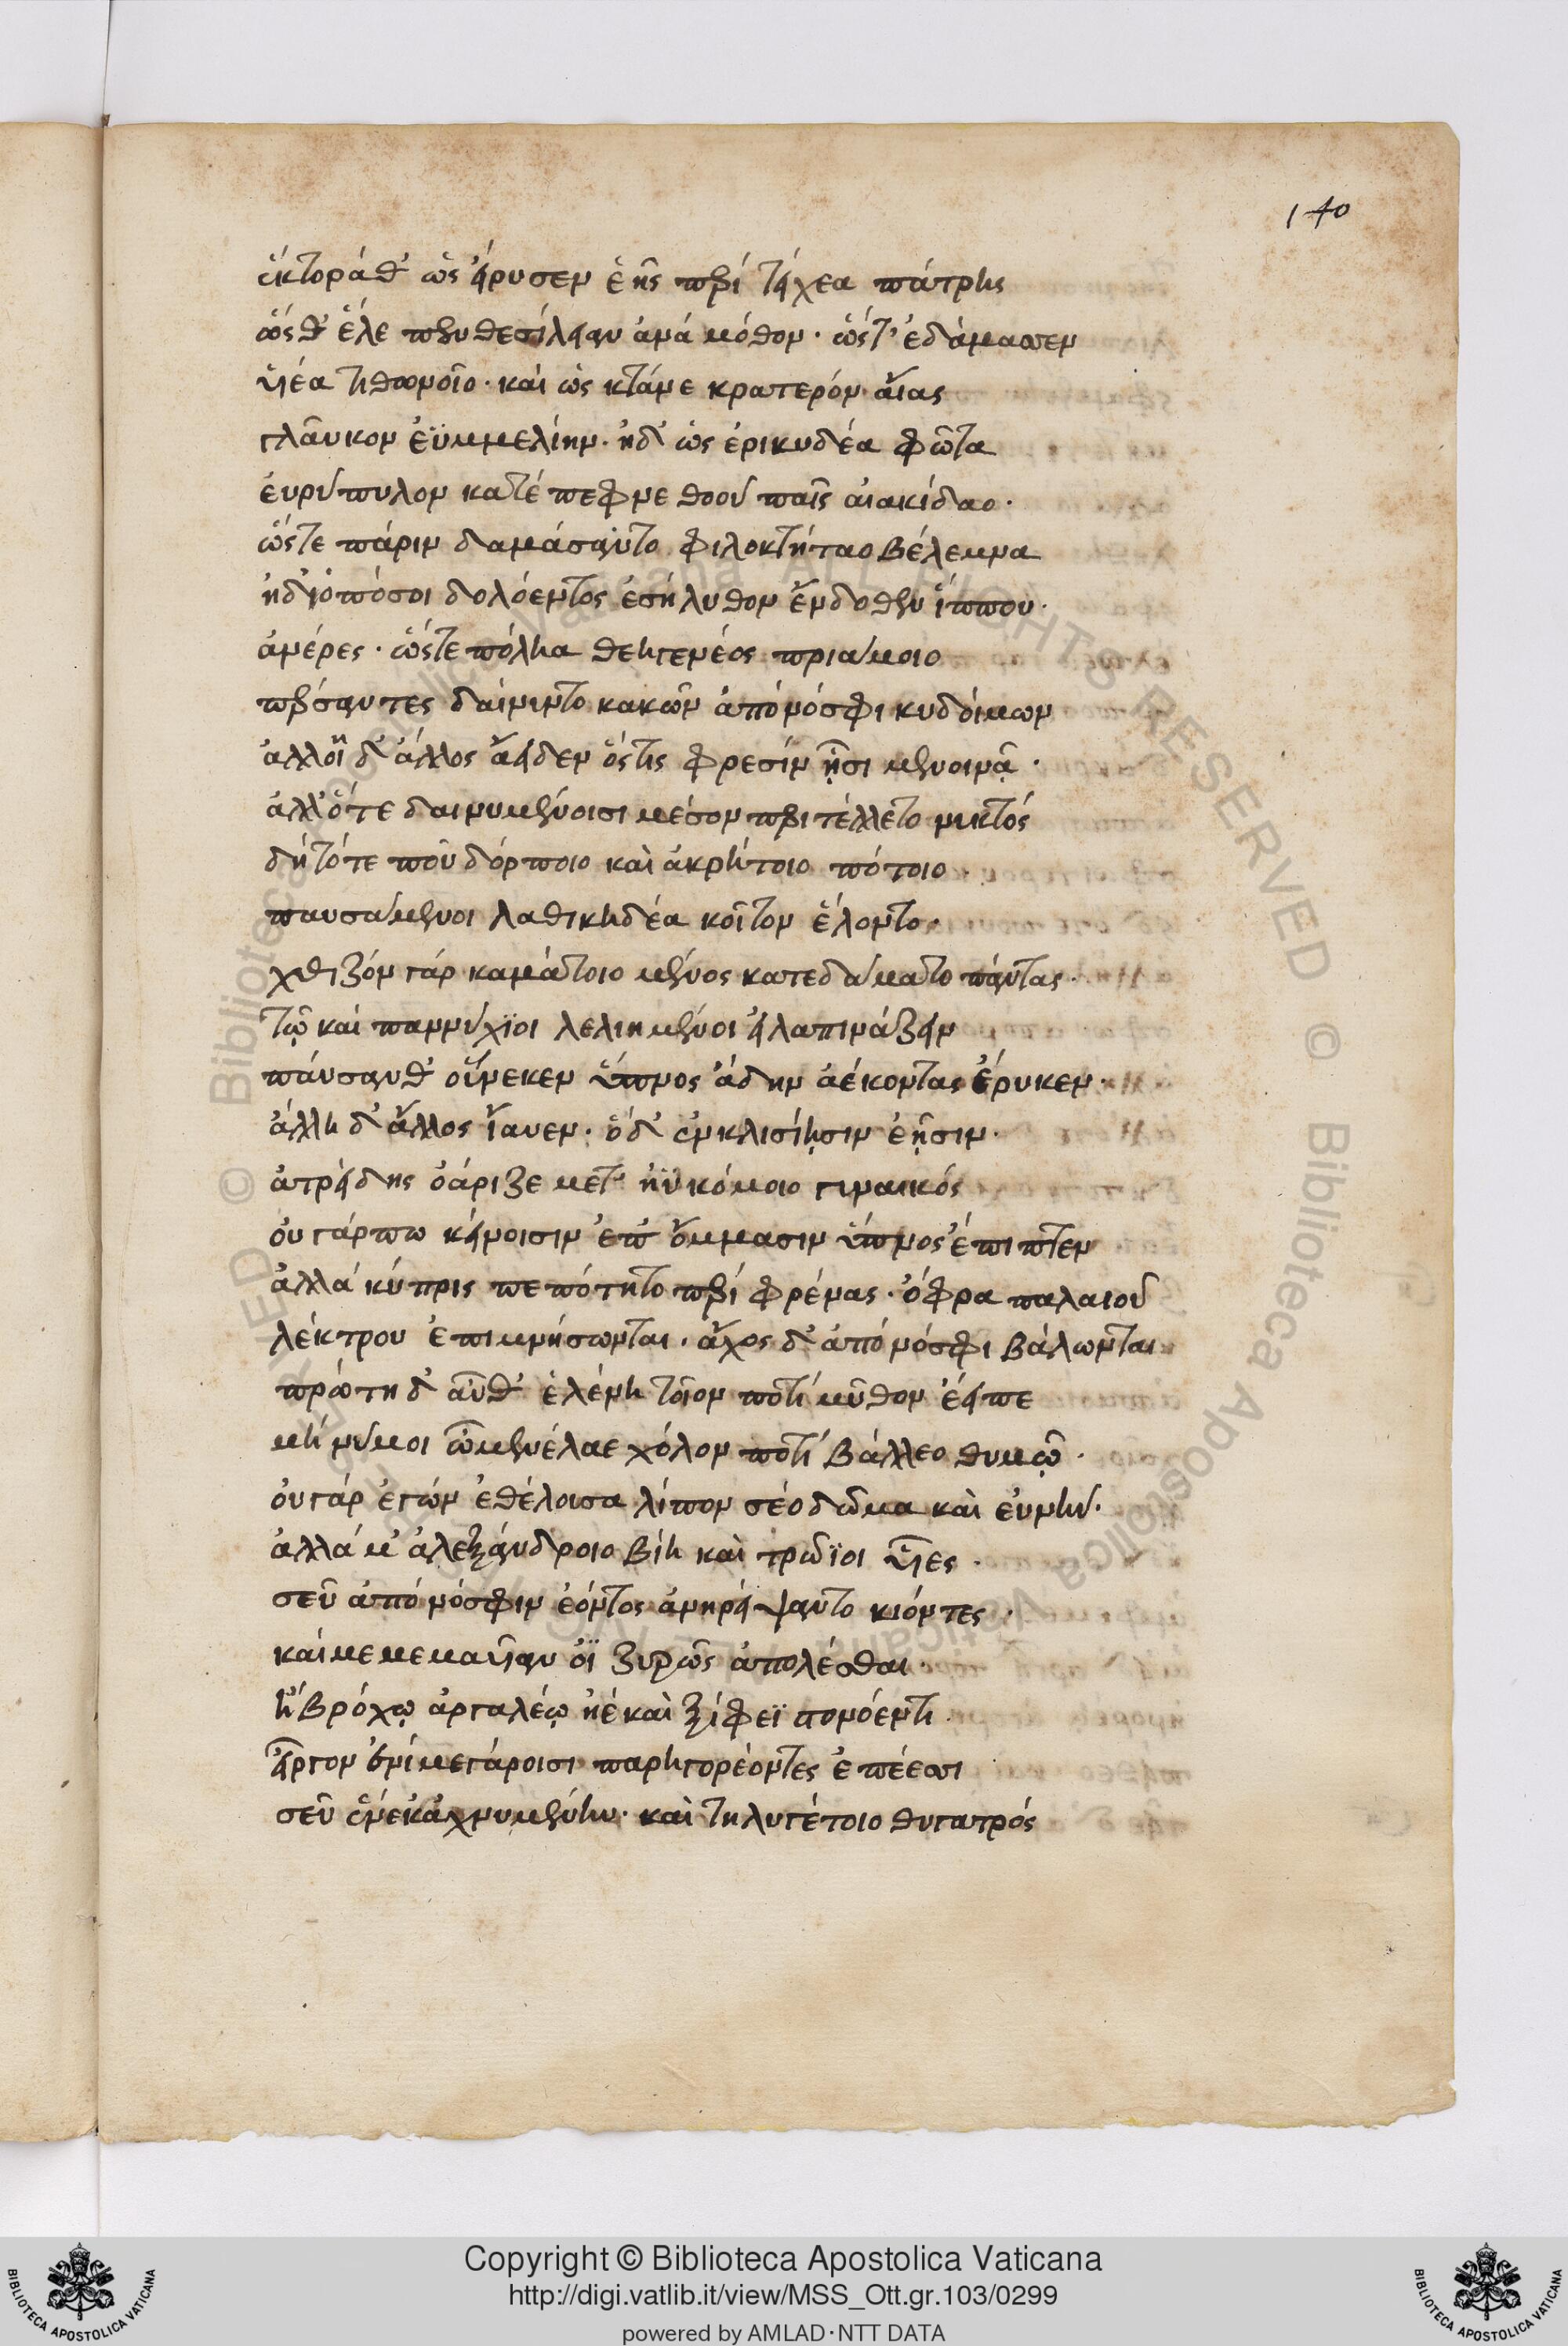 140
ἕκτορά θ' ὡς εἴρυσεν ἑῆς περὶ τείχεα πάτρης
ὥς θ' ἕλε πενθεσίλειαν ἀνὰ μόθον· ὥς τ' ἐδάμασσεν
υἱέα τιθωνοῖο· καὶ ὡς κτάνε κρατερὸν αἴας
γλαῦκον ἐϋμμελίην· ἠδ' ὡς ἐρικυδέα φῶτα
ἐυρύπυλον κατέπεφνε θοοῦ παῖς αἰακίδαο·
ὥς τε πάριν δαμάσαντο φιλοκτήταο βέλεμνα
ἠδ' ὁπόσοι δολόεντος ἐσήλυθον ἔνδοθεν ἵππου·
ἀνέρες· ὥς τε πόληα θεηγενέος πριάμοιο
πέρσαντες δαίνυντο κακῶν ἀπονόσφι κυδοίμων
ἀλλοίῃ δ' ἄλλος ἄειδεν ὅστις φρεσὶν ᾗσι μενοινᾷ·
ἀλλ' ὅτε δαινυμένοισι μέσον περιτέλλετο νυκτός
δὴ τότε που δόρποιο καὶ ἀκρήτοιο πότοιο
παυσάμενοι λαθικηδέα κοῖτον ἕλοντο·
χθιζὸν γὰρ καμάτοιο μένος κατεδάματο πάντας·
τῷ καὶ παννύχϊοι λελιημένοι εἰλαπινάζειν
παύσανθ' οὕνεκεν ὕπνος ἄδην ἀέκοντας ἔρυκεν·
ἄλλη δ' ἄλλος ἴαυεν· ὅδ' ἐν κλισίῃσιν ἐῇσιν·
ἀτρείδης ὀάριζε μετ' ἠϋκόμοιο γυναικός
οὐ γάρ πω κείνοισιν ἐπ' ὄμμασιν ὕπνος ἔπιπτεν
ἀλλὰ κύπρις πεπότητο περὶ φρένας· ὄφρα παλαιοῦ
λέκτρου ἐπιμνήσωνται· ἄχος δ' ἀπονόσφι βάλωνται
πρώτη δ' αὖθ' ἑλένη τοῖον ποτὶ μῦθον ἔειπε
μή νύ μοι ὦ μενέλαε χόλον ποτιβάλλεο θυμῷ·
οὐ γὰρ ἐγὼν ἐθέλουσα λίπον σέο δῶμα καὶ εὐνήν·
ἀλλά μ' ἀλεξάνδροιο βίη καὶ τρώϊοι υἷες·
σεῦ ἀπονόσφιν ἐόντος ἀνηρείψαντο κιόντες·
καί με μεμαυῖαν οἳ ζυγρῶς ἀπολέσθαι·
ἢ βρόχῳ ἀργαλέῳ ἠὲ καὶ ξίφεϊ πονόεντι
εἶργον ἐνὶ μεγάροισι παρηγορέοντες ἐπέεσσι
σεῦ ἕνεκ' ἀχνυμένην· καὶ τηλυγέτοιο θυγατρός
Copyright © Biblioteca Apostolica Vaticana
http://digi.vatlib.it/view/MSS_Ott.gr.103/0299
powered by AMLAD·NTT DATA